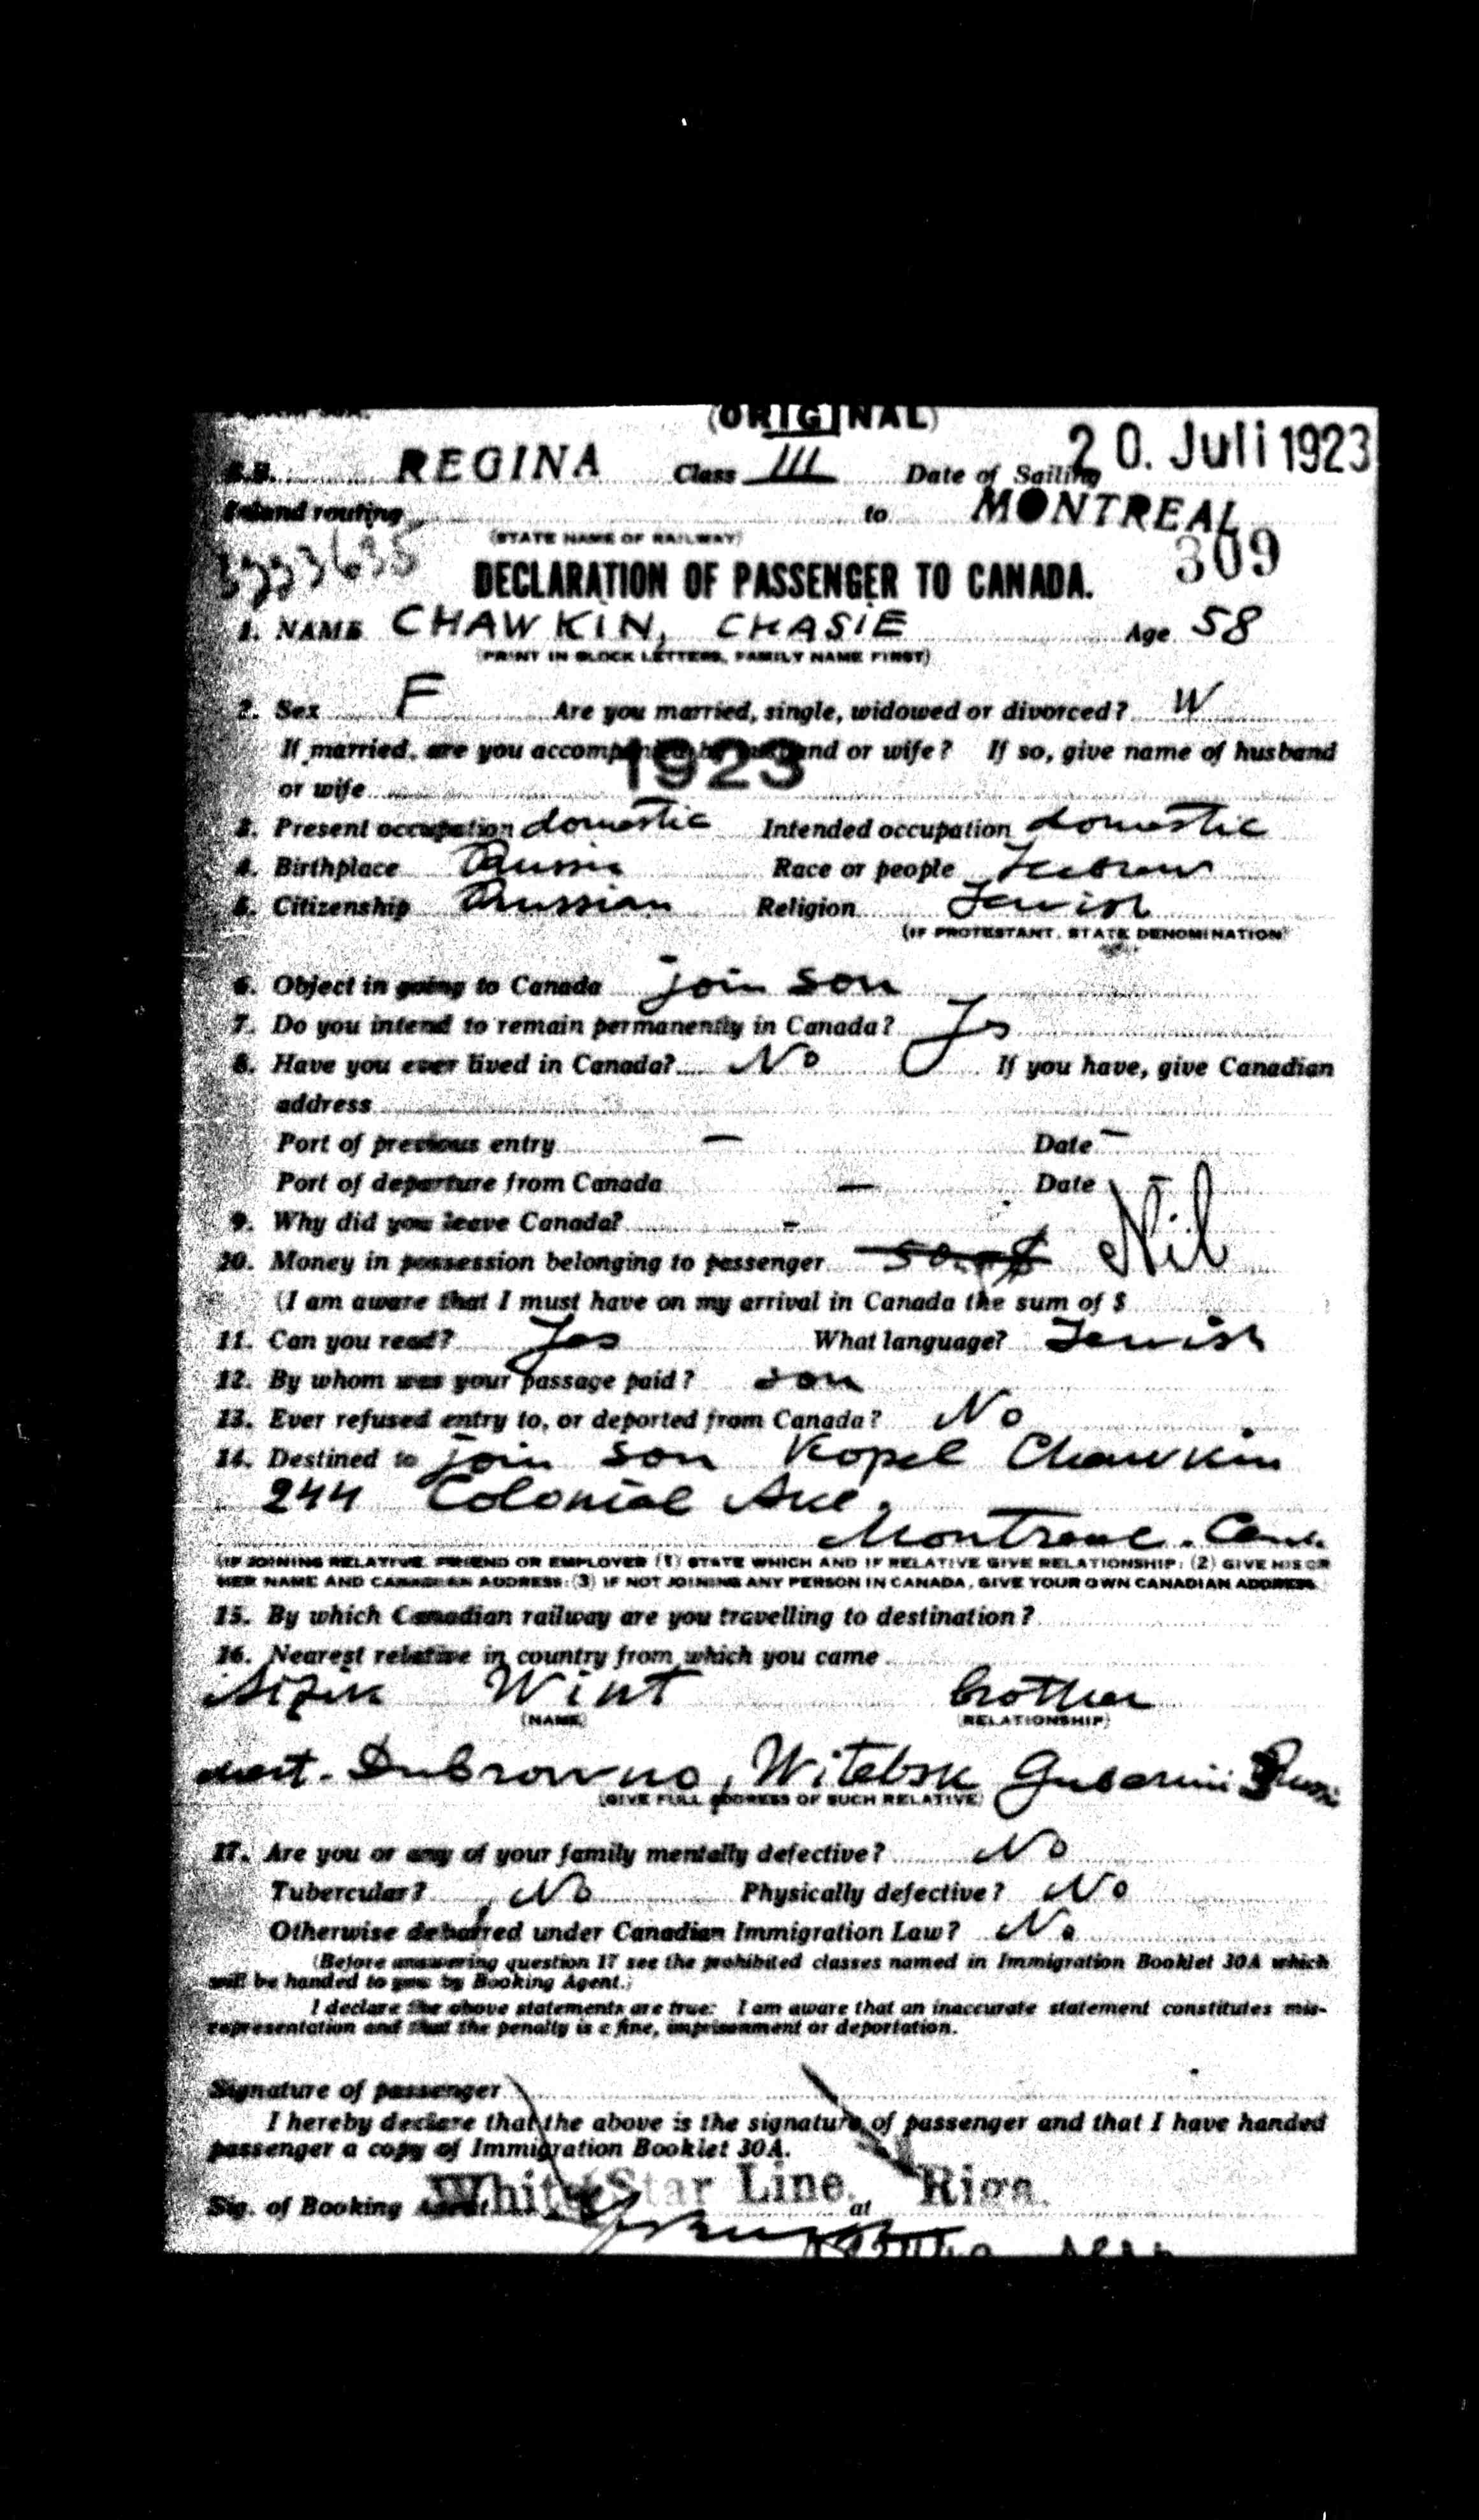 (ORIGINAL)
S.S. REGINA Class III Date of Sailing 20. Juli 1923
Inland routing to MONTREAL
(STATE NAME OF RAILWAY) 309
DECLARATION OF PASSENGER TO CANADA.
1. NAME CHAWKIN, CHASIE Age 58
(PRINT IN BLOCK LETTERS, FAMILY NAME FIRST)
2. Sex F Are you married, single, widowed or divorced? W
If married, are you accompanied by husband or wife? If so, give name of husband
1923
or wife
3. Present occupation domestic Intended occupation domestic
4. Birthplace Russia Race or people Hebrew
5. Citizenship Russian Religion Jewish
(IF PROTESTANT, STATE DENOMINATION)
6. Object in going to Canada join son
7. Do you intend to remain permanently in Canada? Yes
8. Have you ever lived in Canada? No If you have, give Canadian
address
Port of previous entry — Date —
Port of departure from Canada — Date —
9. Why did you leave Canada? –
10. Money in possession belonging to passenger Nil
(I am aware that I must have on my arrival in Canada the sum of $
11. Can you read? Yes What language? Jewish
12. By whom was your passage paid? son
13. Ever refused entry to, or deported from Canada? No
14. Destined to join son Kopel Chawkin
244 Colonial Ave.
Montreal. Can.
(IF JOINING RELATIVE, FRIEND OR EMPLOYER (1) STATE WHICH AND IF RELATIVE GIVE RELATIONSHIP; (2) GIVE HIS OR
HER NAME AND CANADIAN ADDRESS; (3) IF NOT JOINING ANY PERSON IN CANADA, GIVE YOUR OWN CANADIAN ADDRESS
15. By which Canadian railway are you travelling to destination?
16. Nearest relative in country from which you came
Wint brother
(NAME) (RELATIONSHIP)
Dubrowno, Witebsk
(GIVE FULL ADDRESS OF SUCH RELATIVE)
17. Are you or any of your family mentally defective? No
Tubercular? No Physically defective? No
Otherwise debarred under Canadian Immigration Law? No
(Before answering question 17 see the prohibited classes named in Immigration Booklet 30A which
will be handed to you by Booking Agent.)
I declare the above statements are true: I am aware that an inaccurate statement constitutes mis-
representation and that the penalty is a fine, imprisonment or deportation.
Signature of passenger
I hereby declare that the above is the signature of passenger and that I have handed
passenger a copy of Immigration Booklet 30A.
White Star Line. Riga.
Sig. of Booking Agent at